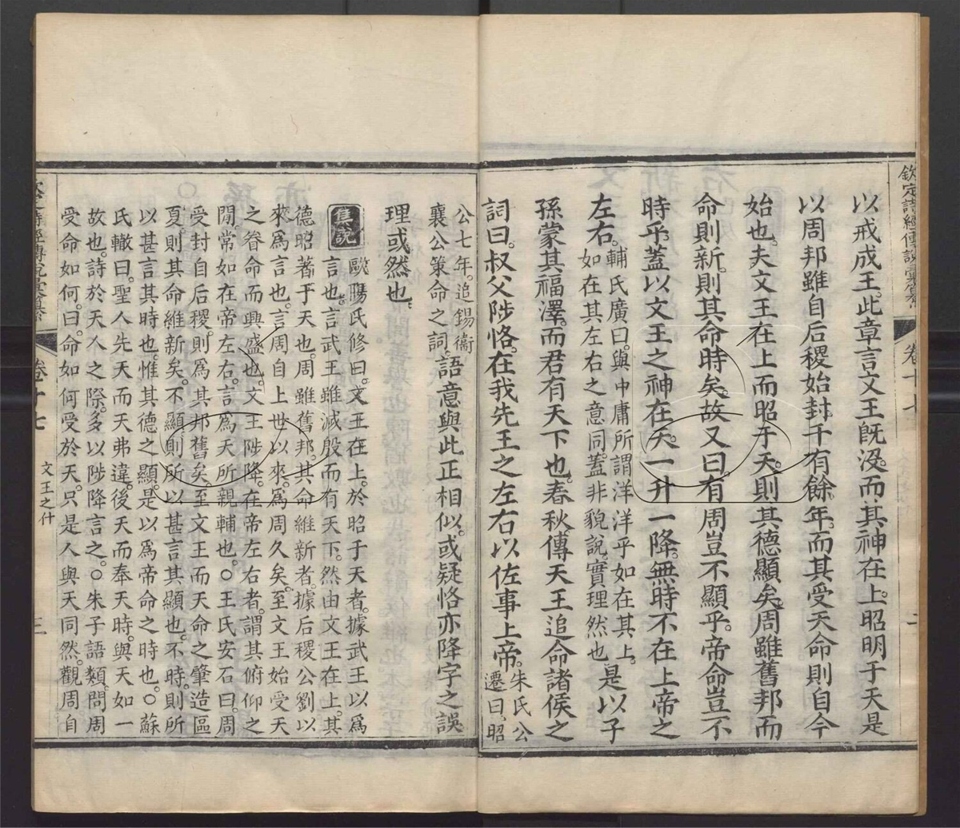 欽定詩經傳說彙纂 卷十七 二
以戒成王此章言文王旣沒而其神在上昭明于天是
以周邦雖自后稷始封千有餘年而其受天命則自今
始也夫文王在上而昭于天則其德顯矣周雖舊邦而
命則新則其命時矣故又曰有周豈不顯乎帝命豈不
時乎蓋以文王之神在天一升一降無時不在上帝之
左右輔氏廣曰與中庸所謂洋洋乎如在其上
如在其左右之意同蓋非貌說實理然也是以子
孫蒙其福澤而君有天下也春秋傳天王追命諸侯之
詞曰叔父陟恪在我先王之左右以佐事上帝朱氏公
遷曰昭
公七年追錫衞
襄公策命之詞語意與此正相似或疑恪亦降字之誤
理或然也
集說 歐陽氏修曰文王在上於昭于天者據武王以爲
言也言武王雖滅殷而有天下然由文王在上其
德昭著于天也周雖舊邦其命維新者據后稷公劉以
來爲言也言周自上世以來爲周久矣至文王始受天
之眷命而興盛也文王陟降在帝左右者謂其俯仰之
閒常如在帝左右言爲天所親輔也○王氏安石曰周
受封自后稷則爲其邦舊矣至文王而天命之肇造區
夏則其命維新矣不顯則所以甚言其顯也不時則所
以甚言其時也惟其德之顯是以爲帝命之時也○蘇
氏轍曰聖人先天而天弗違後天而奉天時與天如一
故也詩於天人之際多以陟降言之○朱子語類問周
受命如何曰命如何受於天只是人與天同然觀周自
欽定詩經傳說彙纂 卷十七 文王之什 三